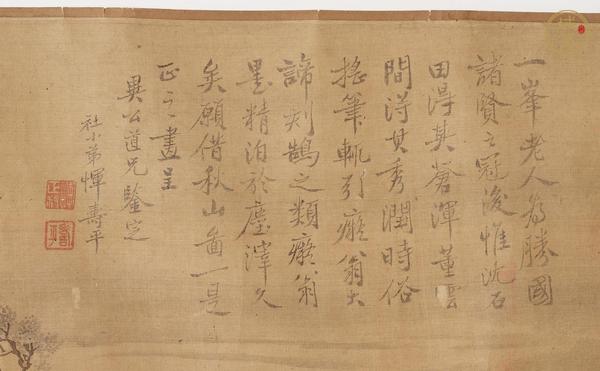 一峯老人為勝國
諸賢之冠後惟沈石
田得其蒼渾董雲
間得其秀潤時俗
搖筆輒引癡翁大
諦刻鵠之類癡翁
墨精汩於塵滓久
矣願借秋山啚一是
正之畫呈
異公道兄鑒定
社小弟惲壽平